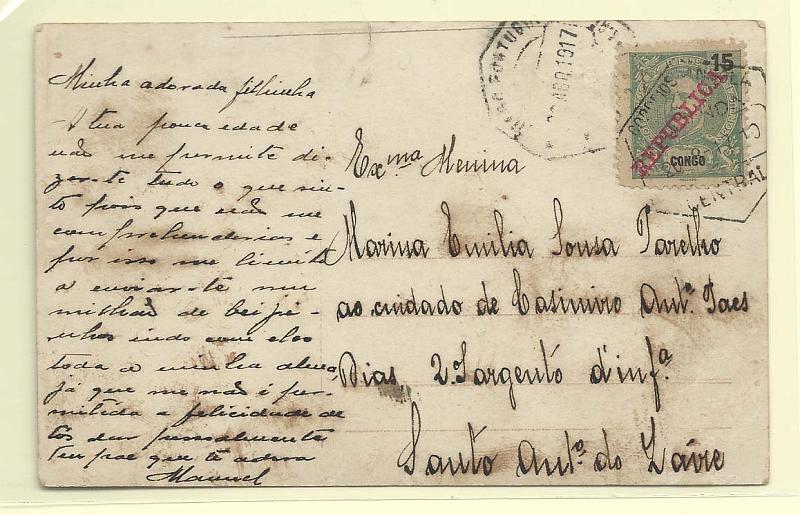 Minha adorada filhinha
A tua pouca edade
não me permite di-
zer-te tudo o que sin-
to pois que não me
comprehenderias e
por isso me limito
a enviar-te um
milhão de beiji-
nhos indo com elles
toda a minha alma,
já que me não é per-
mitida a felicidade de
tos dar pessoalmente
teu pae que te adora
Manuel
Exma Menina
Marina Emilia Sousa Parelho
ao cuidado de Casimiro Antº. Paes
Dias, 2º. Sargentó d'infª
Santo Antº do Zaire
15
REPUBLICA
CONGO
CONGO PORTUGUEZ
ABR.1917
CORREIOS
CENTRAL